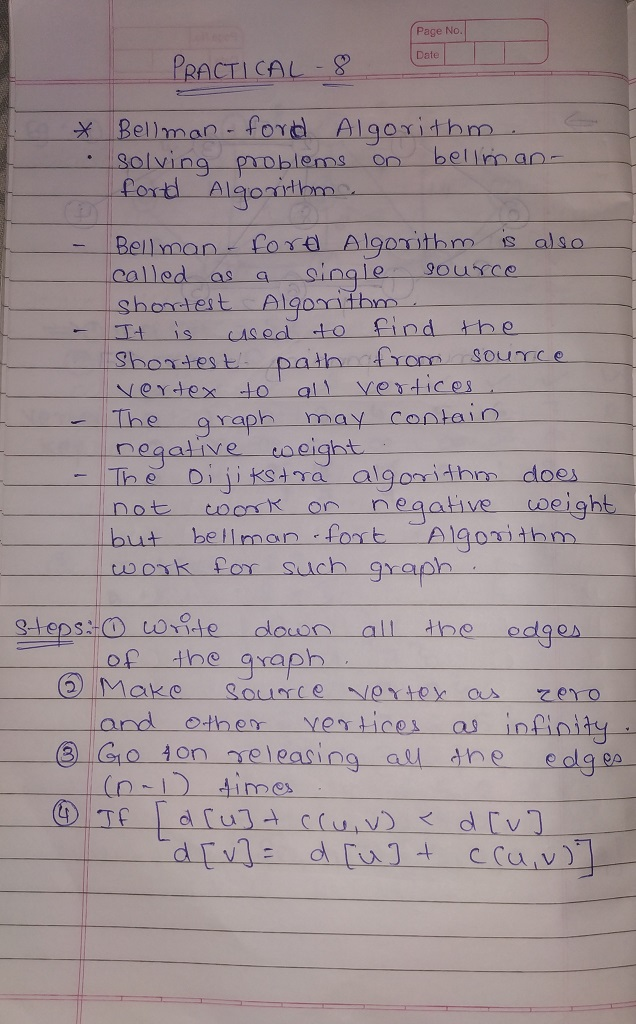 Page No.
Date
PRACTICAL - 8
* Bellman - ford Algorithm.
• Solving problems on bellman-
ford Algorithm.
- Bellman - ford Algorithm is also
called as a single source
shortest Algorithm.
- It is used to find the
shortest path from source
vertex to all vertices.
- The graph may contain
negative weight.
- The Dijikstra algorithm does
not work on negative weight
but bellman - fort Algorithm
work for such graph.
Steps:- ① Write down all the edges
of the graph.
② Make source vertex as zero
and other vertices as infinity.
③ Go on releasing all the edges
(n-1) times.
④ If [d[u] + c(u,v) < d[v]
d[v] = d[u] + c(u,v)]